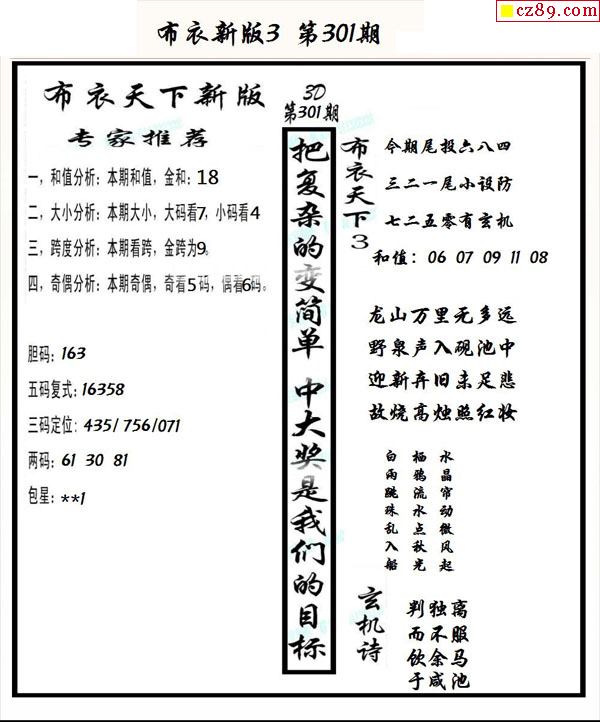 cz89.com
布衣新版3 第301期
布衣天下新版
专家推荐
一，和值分析：本期和值，金和：18
二，大小分析：本期大小，大码看7，小码看4
三，跨度分析：本期看跨，金跨为9。
四，奇偶分析：本期奇偶，奇看5码，偶看6码。
胆码：163
五码复式：16358
三码定位：435/756/071
两码：61 30 81
包星：**1
3D
第301期
把复杂的变简单 中大奖是我们的目标
布衣天下3
今期尾投六八四
三二一尾小设防
七二五零有玄机
和值：06 07 09 11 08
龙山万里无多远
野泉声入砚池中
迎新弃旧未足悲
故烧高烛照红妆
白雨跳珠乱入船
栖鸦流水点秋光
水晶帘动微风起
玄机诗
判独离
而不服
饮余马
于咸池